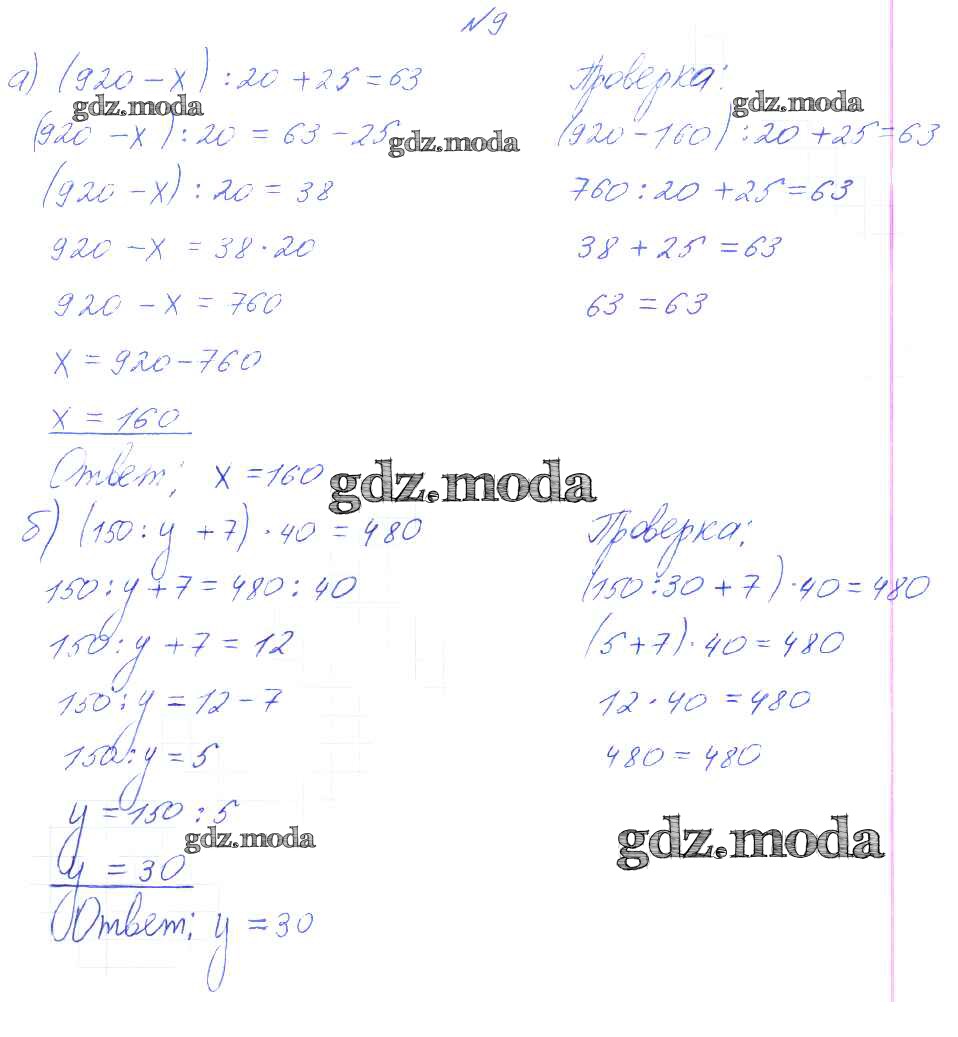 №9
а) (920 – x) : 20 + 25 = 63
gdz.moda
(920 – x) : 20 = 63 – 25
gdz.moda
(920 – x) : 20 = 38
920 – x = 38 · 20
920 – x = 760
x = 920 – 760
x = 160
Ответ: x = 160
gdz.moda
Проверка:
gdz.moda
(920 – 160) : 20 + 25 = 63
760 : 20 + 25 = 63
38 + 25 = 63
63 = 63
б) (150 : y + 7) · 40 = 480
150 : y + 7 = 480 : 40
150 : y + 7 = 12
150 : y = 12 – 7
150 : y = 5
y = 150 : 5
gdz.moda
y = 30
Ответ: y = 30
Проверка:
(150 : 30 + 7) · 40 = 480
(5 + 7) · 40 = 480
12 · 40 = 480
480 = 480
gdz.moda